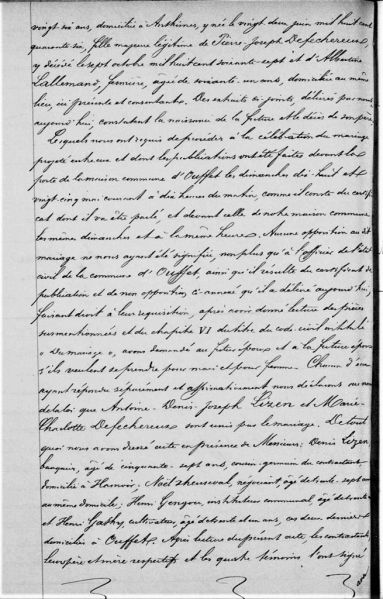 vingt six ans, domiciliée à Anthisnes, y née le vingt deux juin mil huit cent
quarante six, fille majeure légitime de Pierre Joseph Defechereux,
y décédé le sept octobre mil huit cent soixante-sept et d'Albertine
Lallemand, fermière, âgée de soixante un ans, domiciliée au même
lieu, ici présente et consentante. Des extraits ci-joints, délivrés par nous,
aujourd'hui, constatant la naissance de la future et le décès de son père
Lesquels nous ont requis de procéder à la célébration du mariage
projeté entre eux et dont les publications ont été faites devant la
porte de la maison commune d'Ouffet les dimanches dix-huit et
vingt cinq mai courant à dix heures du matin, comme il conste du certifi-
cat dont il va être parlé, et devant celle de notre maison commune
les mêmes dimanches et à la même heure. Aucune opposition au dit
mariage ne nous ayant été signifiée, non plus qu'à l'officier de l'état
civil de la commune d'Ouffet, ainsi qu'il résulte du certificat de
publication et de non opposition, ci-annexé qu'il a délivré aujourd'hui,
faisant droit à leur requisition, après avoir donné lecture des pièces
susmentionnées et du chapitre VI du titre du code civil intitulé
« Du mariage », avons demandé au futur époux et à la future épouse
s'ils veulent se prendre pour mari et pour femme. Chacun d'eux
ayant répondu séparément et affirmativement nous déclarons au nom
de la loi que Antoine-Denis-Joseph Lizen et Marie-
Charlotte Defechereux sont unis par le mariage. De tout
quoi nous avons dressé acte en présence de Messieurs: Denis Lizen
banquier, âgé de cinquante-sept ans, cousin germain du contractant
domicilié à Hannoir, Noël négociant, âgé de trente-sept ans
au même domicile; Henri Gengou, instituteur communal, âgé de trente
et Henri Gathy, cultivateur, âgé de trente et un ans, ces deux derniers
domiciliés à Ouffet. Après lecture du présent acte, les contractants,
leurs père et mère respectifs et les quatre témoins l'ont signé